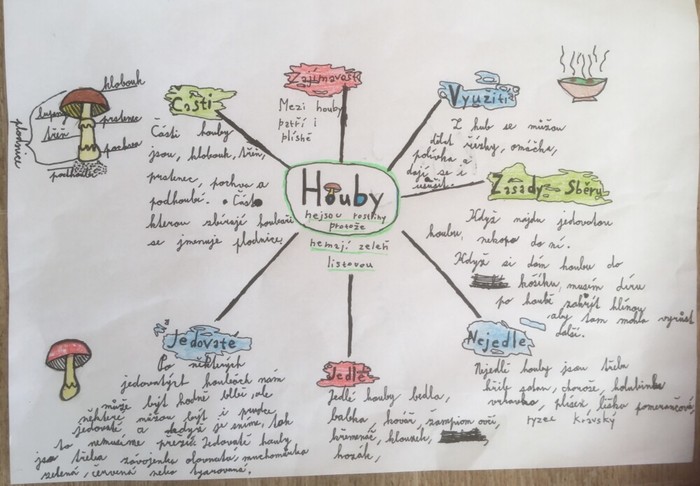 klobouk
lupen
prstenec
třeň
pochva
podhoubí
plodnice
Části
Části houby
jsou, klobouk, třeň,
prstenec, pochva a
podhoubí. • Část
kterou sbírají houbaři
se jmenuje plodnice.
Zajímavost
Mezi houby
patří i
plísně
Využití
Z hub se můžou
dělat řízky, omáčka,
polívka a
dají se i
usušit.
Zásady Sběru
Když najdu jedovatou
houbu, nekopu do ní.
Když si dám houbu do
košíku, musím díru
po houbě zakrýt hlínou
aby tam mohla vyrůst
další.
Houby
nejsou rostliny
protože
nemají zeleň
listovou
Jedovaté
Po některých
jedovatých houbách nám
může být hodně blbě, ale
některé můžou být i prudce
jedovaté a když je sníme, tak
to nemusíme přežít. Jedovaté houby
jsou třeba závojenka olovnatá, muchomůrka
zelená, červená nebo tygrovaná.
Jedlé
Jedlé houby bedla,
babka, kovář, žampion ovčí,
křemenáč, klouzek,
kozák,
Nejedlé
Nejedlé houby jsou třeba
hřib satan, choroše, holubinka
vrhavka, plíseň, liška pomerančová,
ryzec Kravský